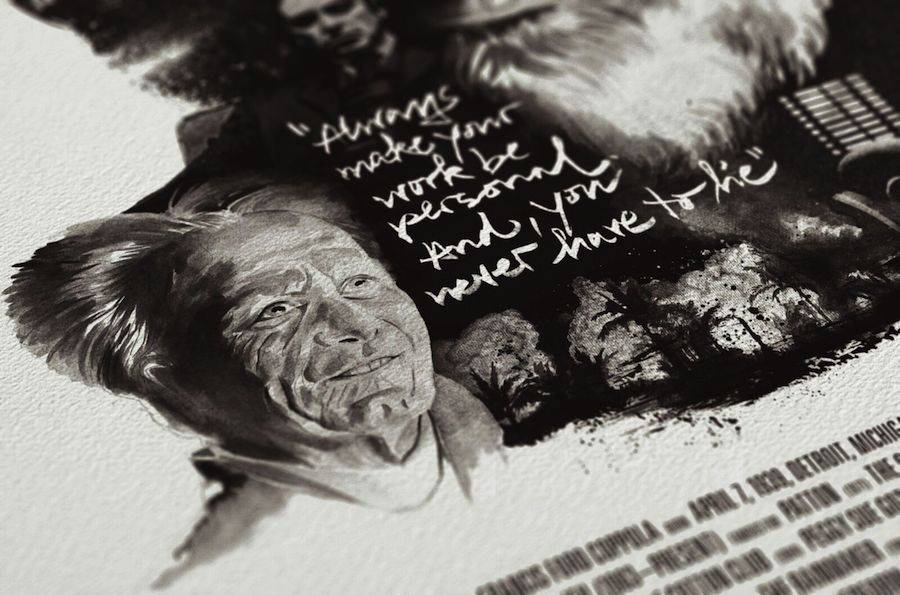 "Always
make your
work be
personal
And, you
never have to lie"
FRANCIS FORD COPPOLA APRIL 7, 1939, DETROIT, MICHIGA
PRESENT) PATTON THE
COTTON CLUB PEGGY SUE GOT
THE RAINMAKER